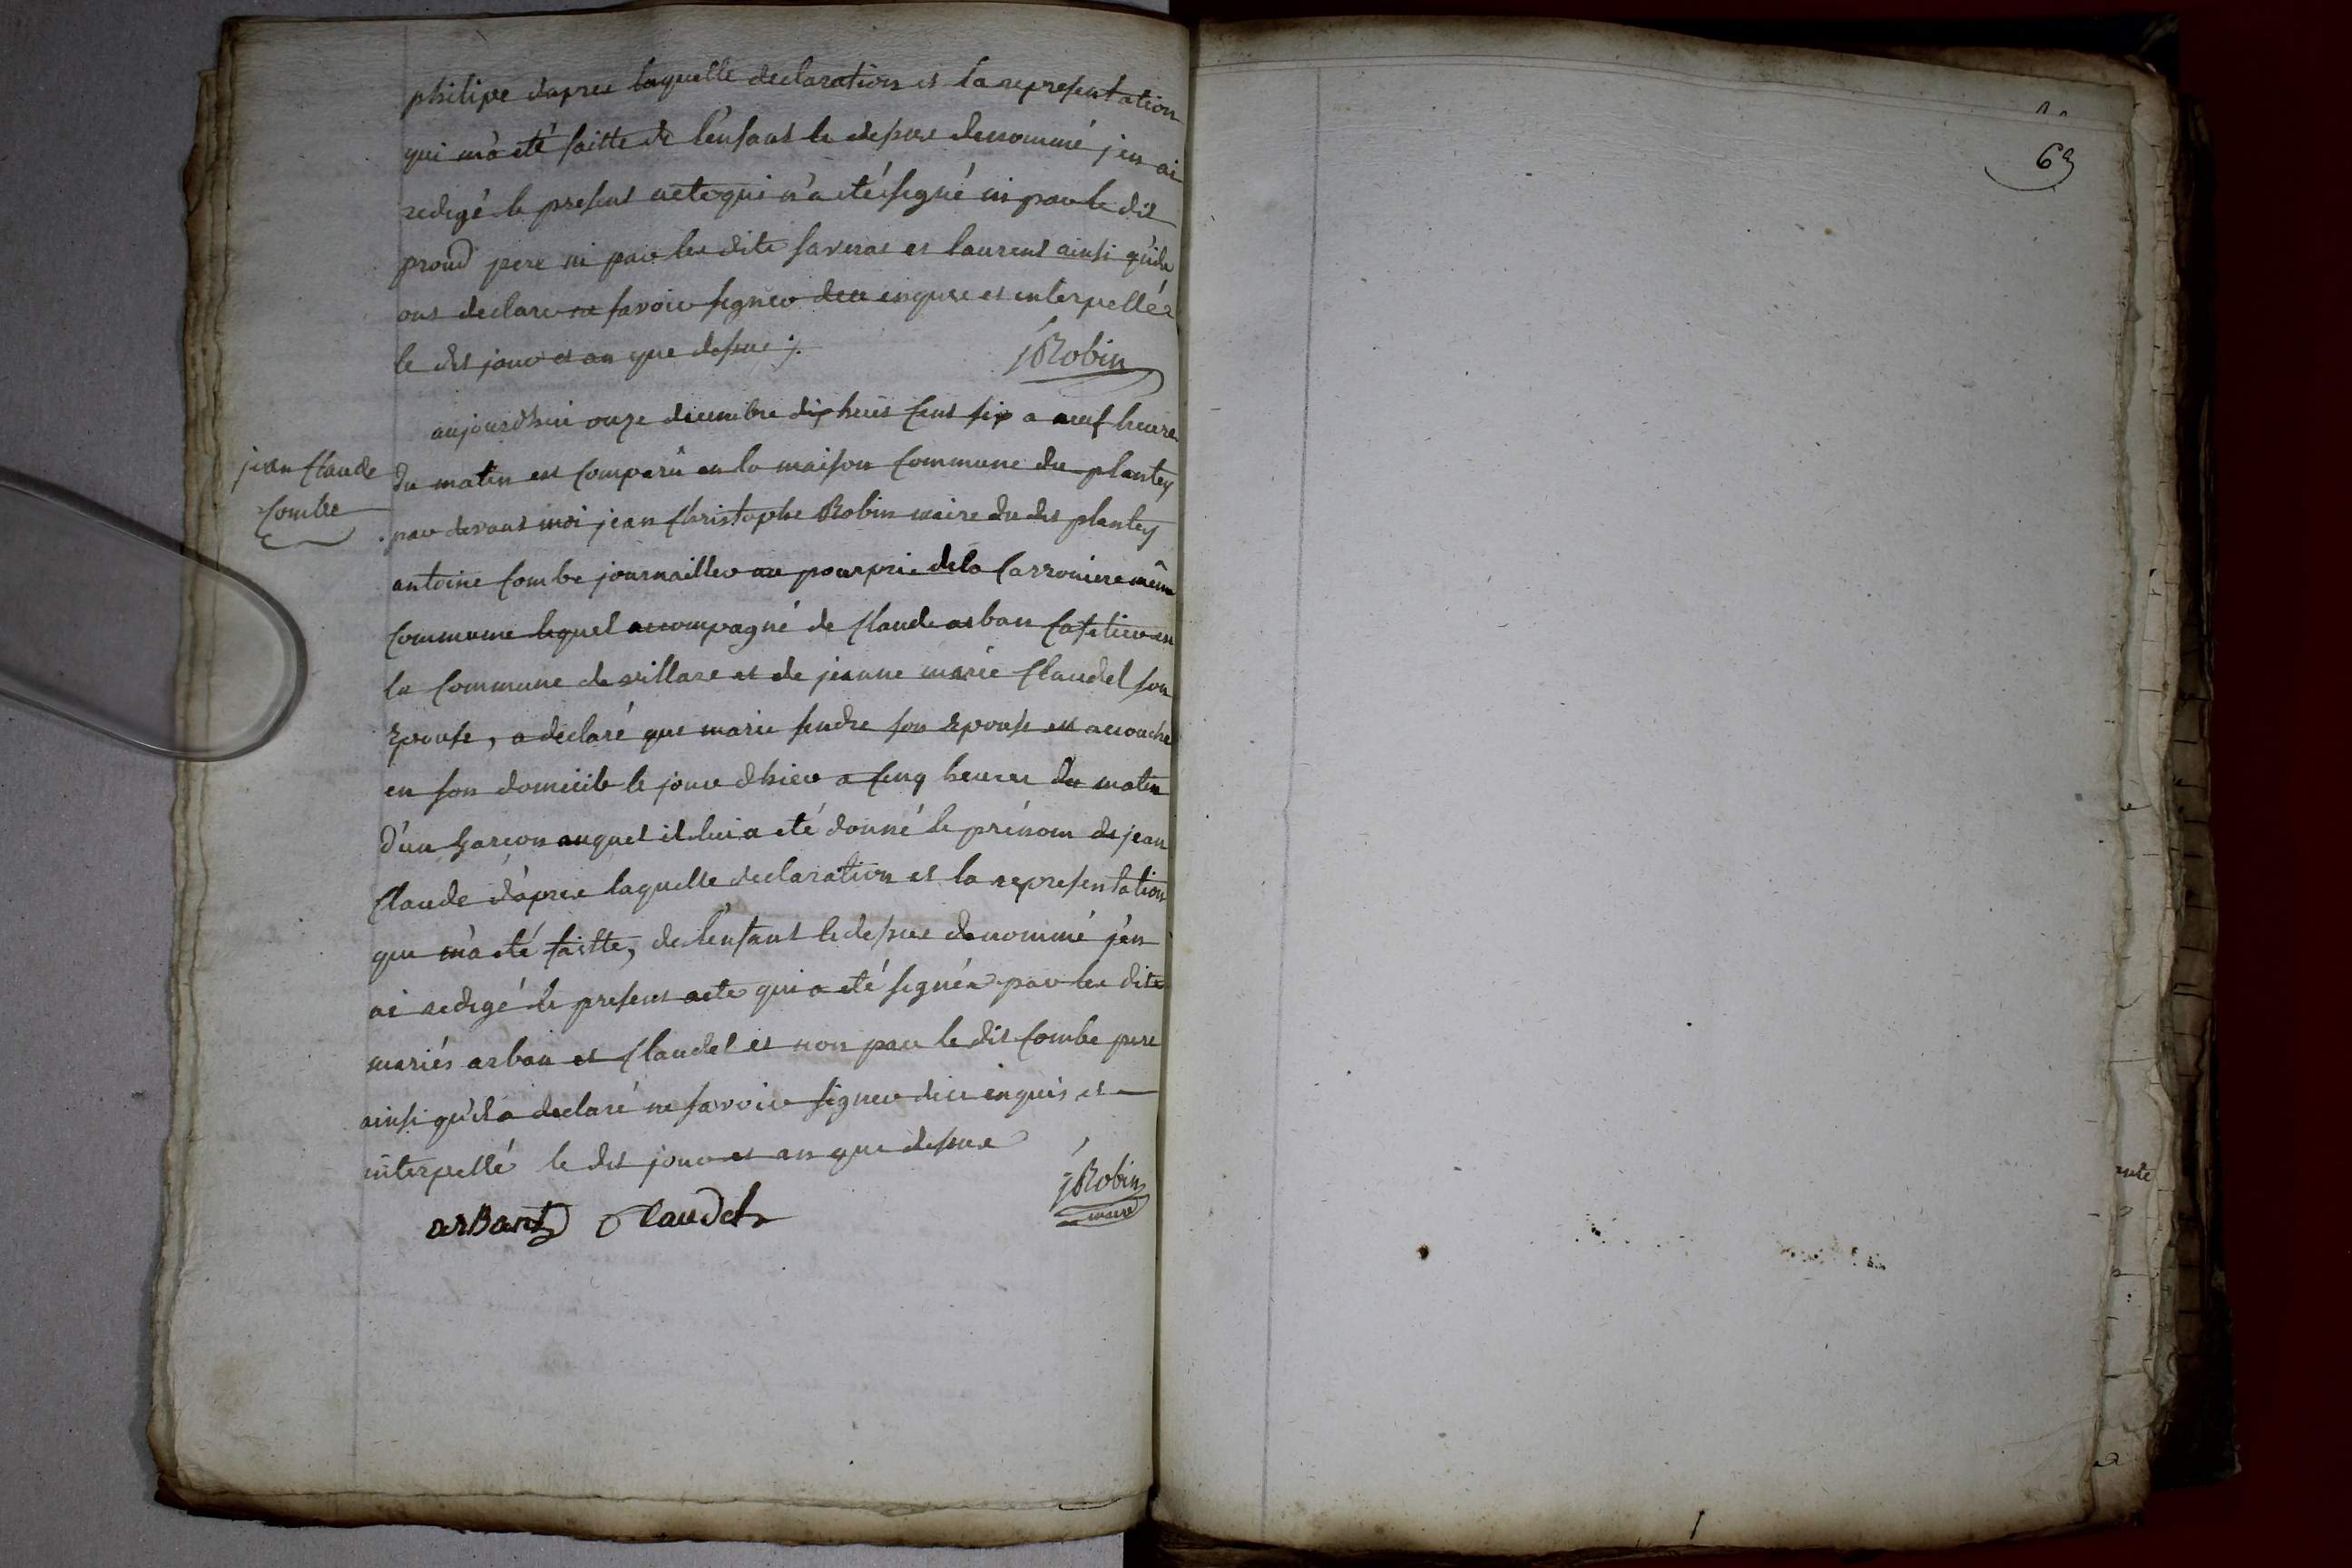 philipe dapres laquelle declaration et la representation
qui m'a eté faitte de l'enfant le dessus denommé j'en ai
redigé le present acte qui n'a eté signé ni par le dit
proud pere ni par les dits saveras et laurent ainsi qu'ils
ont declare ne savoir signer de ce enquis et interpellés
le dit jour et an que dessus ./.
jRobin
aujourdhui onze decembre dix huit cent six a neuf heures
jean Claude
Combe
du matin est comparû en la maison commune du plantey
par devant moi jean Christophe Robin maire du dit plantey
antoine Combe journaillier au pourprie de la Carroniere même
Commune lequel accompagné de Claude arban en
la Commune de villars et de jeanne marie Claudel son
Epouse, a declaré que marie fendre son Epouse est accouché
en son domicile le jour dhier a cinq heures du matin
d'un garcon auquel il lui a eté donné le prénom de jean
Claude d'apres laquelle declaration et la representation
que m'a eté faitte, de l'enfant le dessus denommé j'en
ai redigé le present acte qui a eté signée par les dits
mariés arban et Claudel et non par le dit Combe pere
ainsi qu'il a declaré ne savoir signer de ce enquis et
interpellé le dit jour et an que dessus
arBant Claudet
jRobin
maire
63